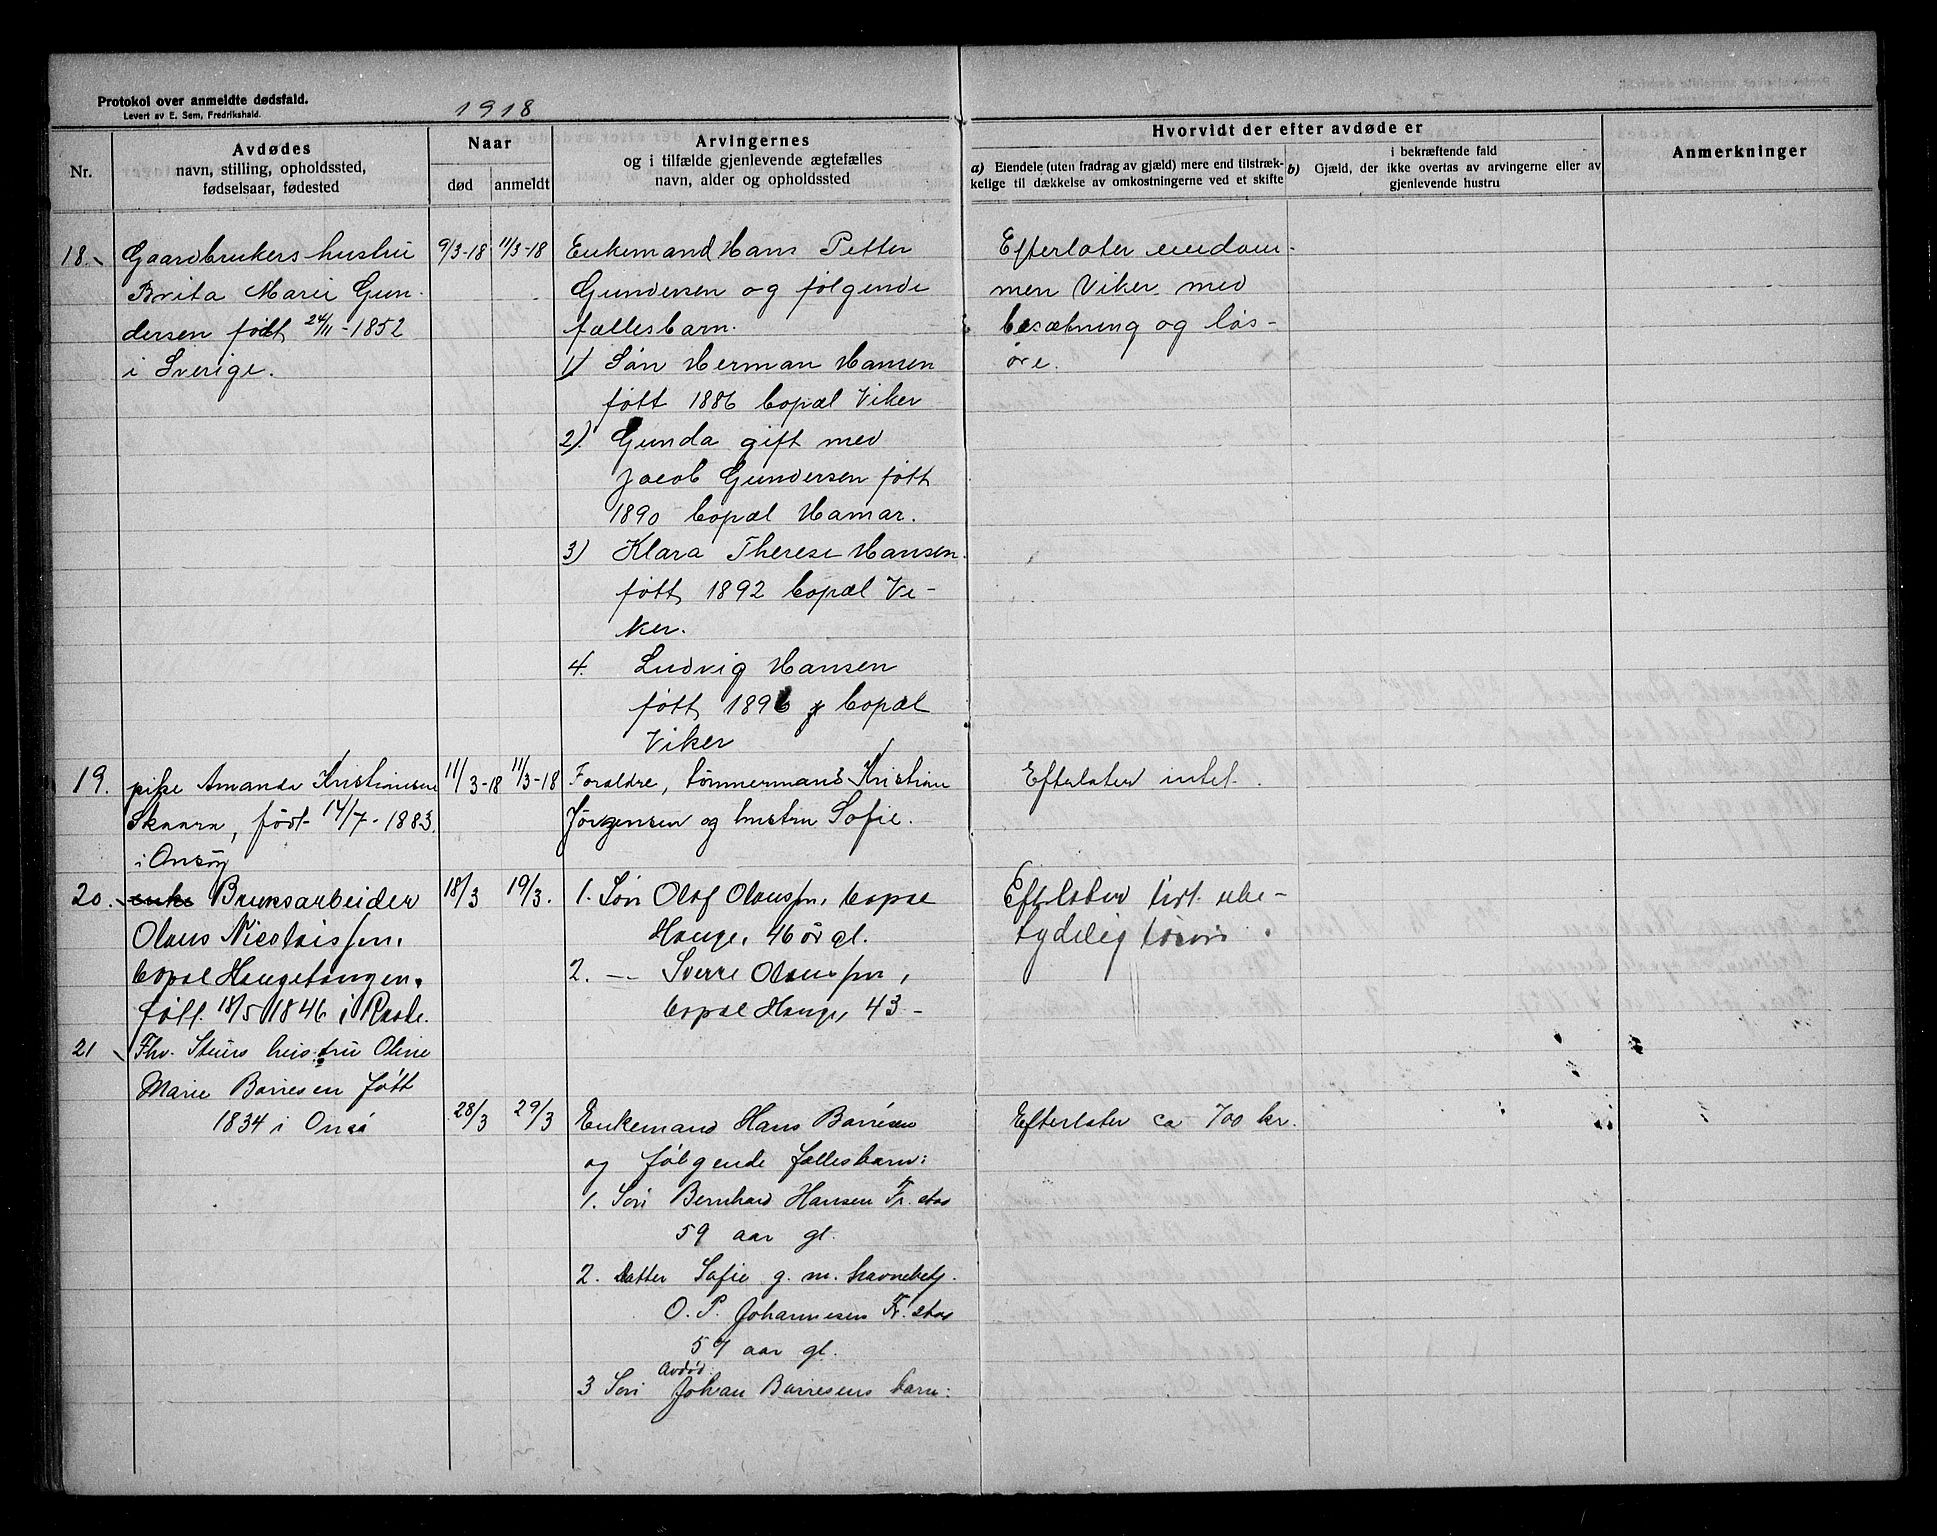 Protokol over anmeldte dødsfald.
Levert av E. Sem, Fredrikshald.
1918
Nr.
Avdødes
navn, stilling, opholdssted,
fødselsaar, fødested
Naar
død
anmeldt
Arvingernes
og i tilfælde gjenlevende ægtefælles
navn, alder og opholdssted
Hvorvidt der efter avdøde er
a) Eiendele (uten fradrag av gjæld) mere end tilstræk-
kelige til dækkelse av omkostningerne ved et skifte
b) Gjæld, der i bekræftende fald
ikke overtas av arvingerne eller av
gjenlevende hustru
Anmerkninger
18.
Gaardbrukers hustru
Brita Marie Gun-
dersen født 24/11-1852
i Sverige.
9/3-18
11/3-18
Enkemand Hans Petter
Gundersen og følgende
fællesbarn.
1) Søn Herman Hansen
født 1886 bopæl Viker
2). Gunda gift med
Jacob Gundersen født
1890 bopæl Hamar.
3) Klara Therese Hansen.
født 1892 bopæl Vi-
ker.
4. Ludvig Hansen
født 1896 bopæl
Viker
Efterlater eiendom-
men Viker med
besætning og løs-
øre.
19.
pike Amanda Kristiansen
Skaara, født 14/7-1883
i Onsøy
11/3-18
11/3-18
Foraldre, tømmermand Kristian
Jørgensen og hustru Sofie.
Efterlater intet.
20.
enke Bruksarbeider
Olaus Nicolaissen,
bopæl Haugetangen,
født 18/5 1846 i Raade.
18/3
19/3.
1. Søn Olaf Olaussen, bopæl
Hauge, 46 år gl.
2. — Sverre Olaussen,
bopæl Hauge, 43 -
Efterlater litt ube-
tydelig løsøre.
21
Fhv. Stuers hustru Oline
Marie Borresen født
1834 i Onsø
28/3
29/3
Enkemand Hans Borresen
og følgende fællesbarn:
1. Søn Bernhard Hansen Fr.stad
59 aar gl.
2. Datter Sofie g. m. havnebetj.
O. P. Johannesen Fr. stad
57 aar gl.
3 Søn Avdød Johan Borresens barn:
Efterlater ca 700 kr.